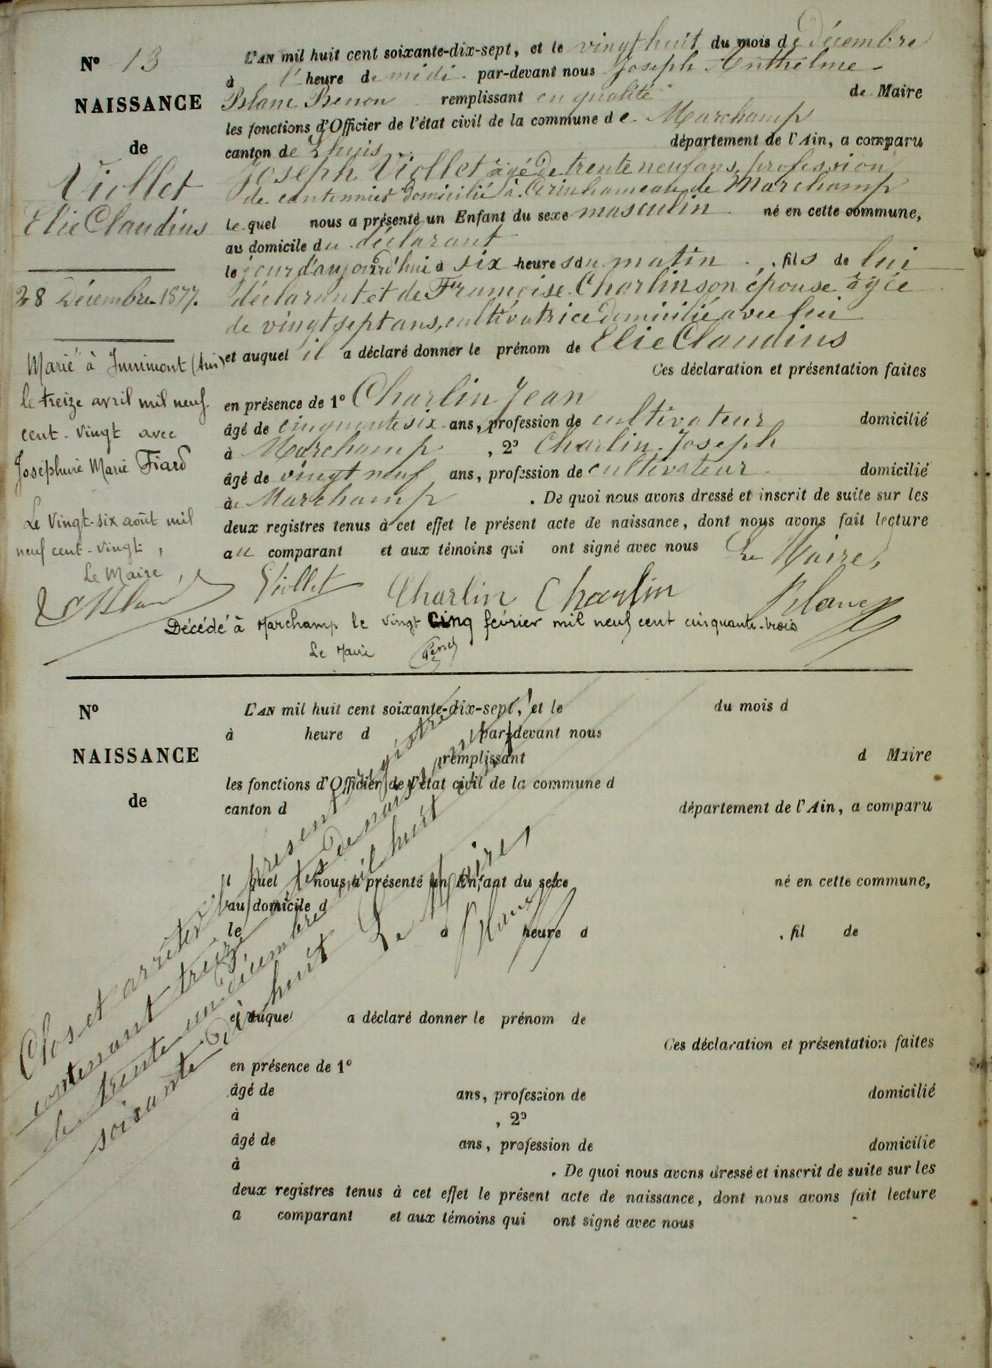 N° 13
NAISSANCE
de
Viollet
Elie Claudius
28 Décembre 1877.
Marié à Innimont (Ain)
le treize avril mil neuf
cent-vingt avec
Joséphine Marie Fiard
Le vingt-six août mil
neuf cent-vingt,
Le Maire,
L'AN mil huit cent soixante-dix-sept, et le vingt huit du mois de décembre
à l' heure de midi par-devant nous Joseph Anthelme
Blanc Benon remplissant en qualité de Maire
les fonctions d'Officier de l'état civil de la commune de Marchamp
canton de Lhuis département de l'Ain, a comparu
Joseph Viollet âgé de trente neuf ans, profession
de cantonnier domicilié à Cerin hameau de Marchamp
lequel nous a présenté un Enfant du sexe masculin né en cette commune,
au domicile du déclarant
le jour d'aujourd'hui à six heures du matin, fils de lui
déclarant et de Françoise Charlin son épouse âgée
de vingt sept ans, cultivatrice domicilié avec lui
et auquel il a déclaré donner le prénom de Elie Claudius
Ces déclaration et présentation faites
en présence de 1° Charlin Jean
âgé de cinquante six ans, profession de cultivateur domicilié
à Marchamp, 2° Charlin Joseph
âgé de vingt neuf ans, profession de cultivateur domicilié
à Marchamp. De quoi nous avons dressé et inscrit de suite sur les
deux registres tenus à cet effet le présent acte de naissance, dont nous avons fait lecture
au comparant et aux témoins qui ont signé avec nous Le Maire,
Viollet Charlin Charlin Blanc
Décédé à Marchamp le vingt cinq février mil neuf cent cinquante-trois
Le Maire
N°
NAISSANCE
de
L'AN mil huit cent soixante-dix-sept, et le du mois d
à heure d par-devant nous
remplissant d Maire
les fonctions d'Officier de l'état civil de la commune d
canton d département de l'Ain, a comparu
l quel nous a présenté un Enfant du sexe né en cette commune,
au domicile d
le à heure d , fil de
et auquel a déclaré donner le prénom de
Ces déclaration et présentation faites
en présence de 1°
âgé de ans, profession de domicilié
à , 2°
âgé de ans, profession de domicilié
à . De quoi nous avons dressé et inscrit de suite sur les
deux registres tenus à cet effet le présent acte de naissance, dont nous avons fait lecture
a comparant et aux témoins qui ont signé avec nous
Clos et arrêté le présent registre
contenant treize actes de naissance
le trente un décembre mil huit cent
soixante dix huit Le Maire,
Blanc